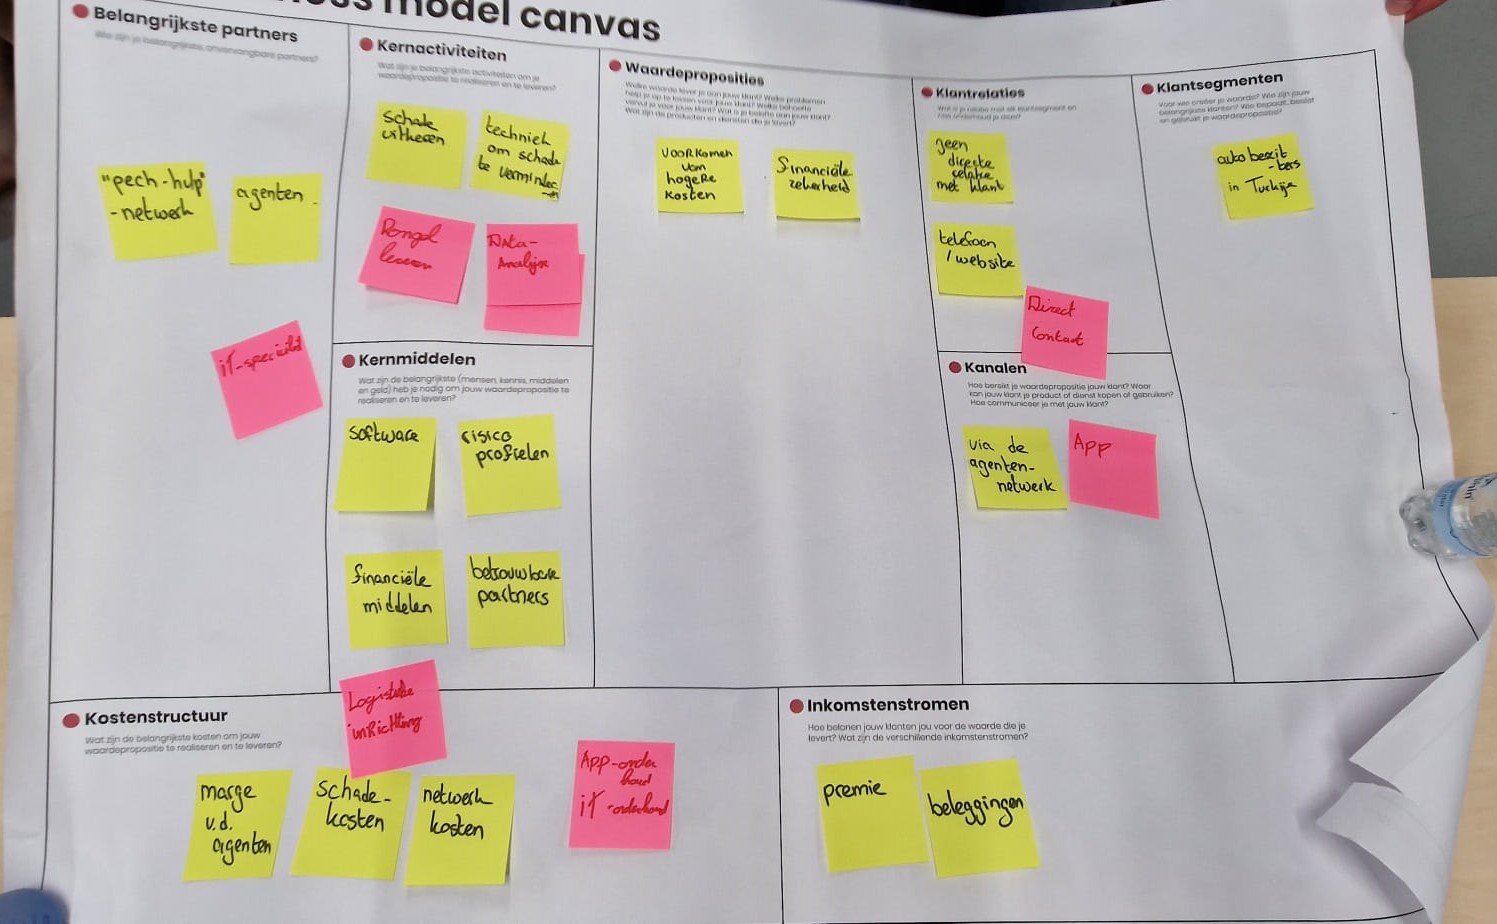 ness model canvas
Belangrijkste partners
Wie zijn je belangrijkste, onvervangbare partners?
"pech-hulp"
-netwerk
agenten
iT-specialist
Kernactiviteiten
Wat zijn je belangrijkste activiteiten om je
waardepropositie te realiseren en te leveren?
Schade
uitkeren
techniek
om schade
te verminderen
Data-
Analyse
Kernmiddelen
Wat zijn de belangrijkste (mensen, kennis, middelen
en geld) heb je nodig om jouw waardepropositie te
realiseren en te leveren?
software
risico
profielen
financiële
middelen
betrouwbare
partners
Logistieke
inrichting
Waardeproposities
Welke waarde lever je aan jouw klant? Welke problemen
help je op te lossen voor jouw klant? Welke behoefte
vervul je voor jouw klant? Wat is je belofte aan jouw klant?
Wat zijn de producten en diensten die je levert?
Voorkomen
van
hogere
kosten
financiële
zekerheid
Klantrelaties
Wat is je relatie met elk klantsegment en
hoe onderhoud je deze?
geen
directe
relatie
met klant
telefoon
/ website
Direct
Contact
Kanalen
Hoe bereikt je waardepropositie jouw klant? Waar
kan jouw klant je product of dienst kopen of gebruiken?
Hoe communiceer je met jouw klant?
via de
agenten-
netwerk
App
Klantsegmenten
Voor wie creëer je waarde? Wie zijn jouw
belangrijkste klanten? Wie bepaalt, beslist
en gebruikt je waardepropositie?
auto bezit
-ters
in Turkije
Kostenstructuur
Wat zijn de belangrijkste kosten om jouw
waardepropositie te realiseren en te leveren?
marge
v.d.
agenten
schade-
kosten
netwerk
kosten
App-onder
houd
iT-onderhoud
Inkomstenstromen
Hoe belonen jouw klanten jou voor de waarde die je
levert? Wat zijn de verschillende inkomstenstromen?
premie
beleggingen